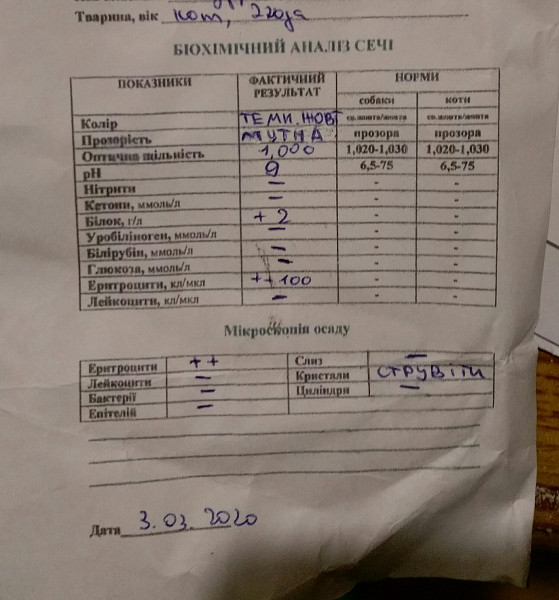 Тварина, вік кот, 2 года
БІОХІМІЧНИЙ АНАЛІЗ СЕЧІ
ПОКАЗНИКИ ФАКТИЧНИЙ РЕЗУЛЬТАТ НОРМИ
собаки коти
Колір ТЕМН. ЖОВТ св.жовта/жовта св.жовта/жовта
Прозорість МУТНА прозора прозора
Оптична щільність 1,000 1,020-1,030 1,020-1,030
pH 9 6,5-75 6,5-75
Нітрити — - -
Кетони, ммоль/л — - -
Білок, г/л + 2 - -
Уробіліноген, ммоль/л — - -
Білірубін, ммоль/л — - -
Глюкоза, ммоль/л — - -
Еритроцити, кл/мкл ++ 100 - -
Лейкоцити, кл/мкл — - -
Мікроскопія осаду
Еритроцити ++ Слиз —
Лейкоцити — Кристали СТРУВІТИ
Бактерії — Циліндри —
Епітелій —
Дата 3.03.2020